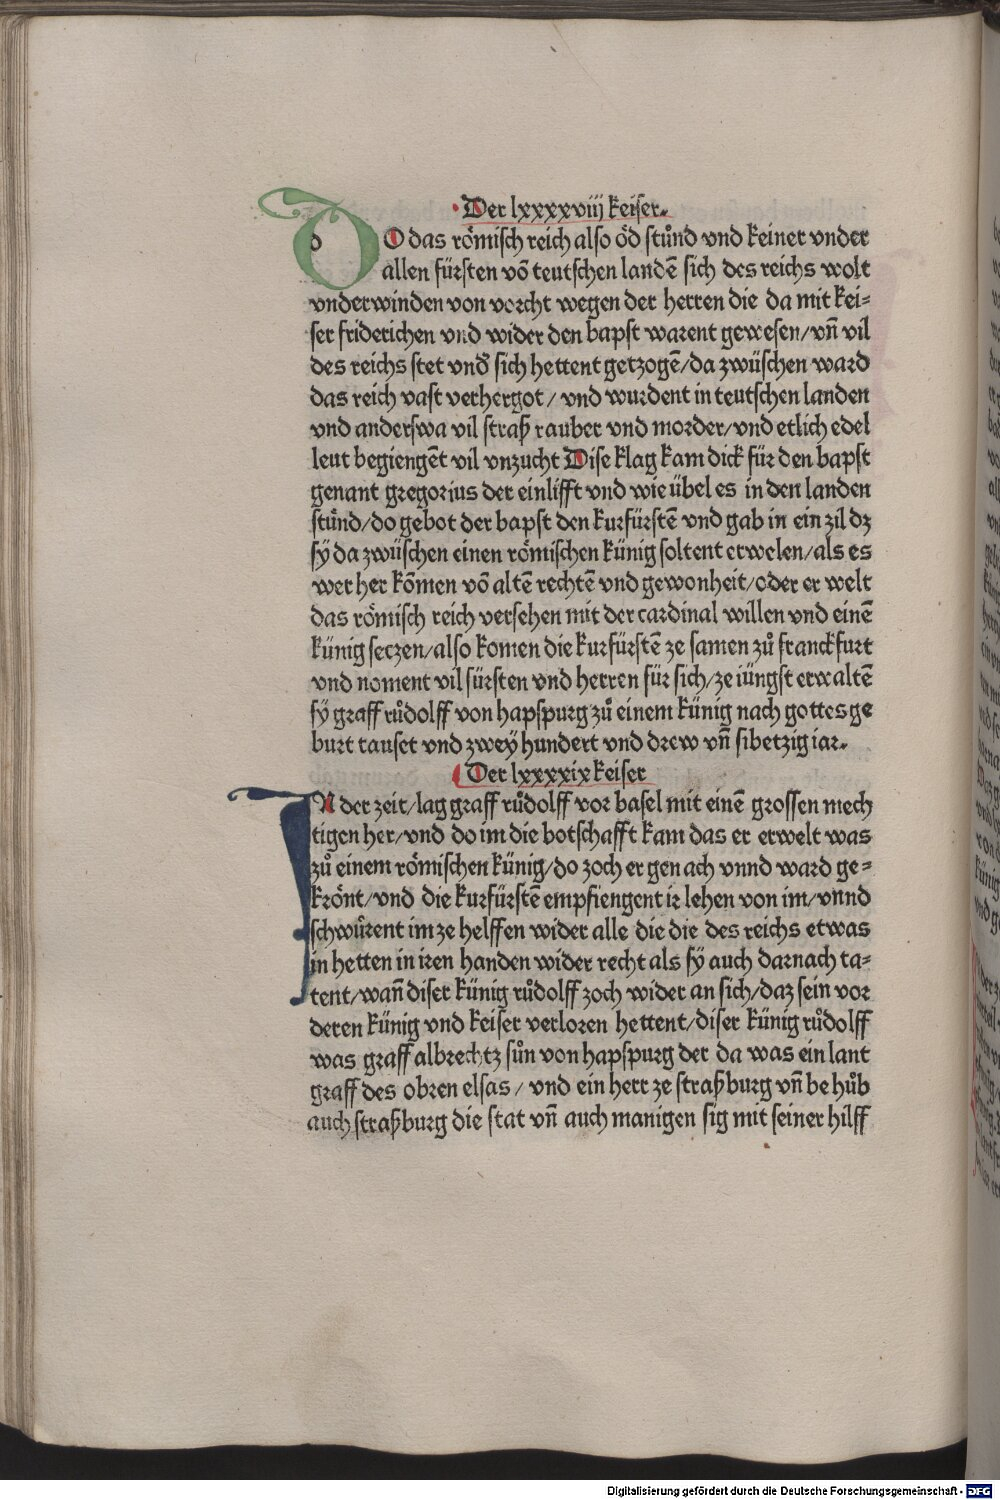 Der lxxxxviij keiser.
DO das rŏmisch reich also ŏd stůnd vnd keiner vnder
allen fürsten vō teutschen landē sich des reichs wolt
vnderwinden von vorcht wegen der herren die da mit kei=
ser friderichen vnd wider den bapst warent gewesen/vn̄ vil
des reichs stet vnd' sich hettent getzogē/da zwüschen ward
das reich vast verhergot/ vnd wurdent in teutschen landen
vnd anderswa vil straß rauber vnd morder/vnd etlich edel
leut begiengēt vil vnzucht Dise klag kam dick für den bapst
genant gregorius der einlifft vnd wie übel es in den landen
stůnd/do gebot der bapst den kurfürstē vnd gab in ein zil dz
sÿ da zwüschen einen rŏmischen künig soltent erwelen/als es
wer her kōmen vō altē rechtē vnd gewonheit/oder er welt
das rŏmisch reich versehen mit der cardinal willen vnd einē
künig seczen/also komen die kurfürstē ze samen zů franckfurt
vnd noment vil fürsten vnd herren für sich/ze iüngst erwaltē
sÿ graff růdolff von hapspurg zů einem künig nach gottes ge
burt tauset vnd zweÿ hundert vnd drew vn̄ sibetzig iar.
Der lxxxxix keiser
IN der zeit/lag graff růdolff vor basel mit einē grossen mech
tigen her/vnd do im die botschafft kam das er erwelt was
zů einem rŏmischen künig/do zoch er gen ach vnnd ward ge=
krŏnt/vnd die kurfürstē empfiengent ir lehen von im/vnnd
schwůrent im ze helffen wider alle die die des reichs etwas
in hetten in iren handen wider recht als sÿ auch darnach ta=
tent/wan̄ diser künig růdolff zoch wider an sich/daz sein vor
deren künig vnd keiser verloren hettent/diser künig růdolff
was graff albrechtz sůn von hapspurg der da was ein lant
graff des obren elsas/ vnd ein herr ze straßburg vn̄ be hůb
auch straßburg die stat vn̄ auch manigen sig mit seiner hilff
Digitalisierung gefördert durch die Deutsche Forschungsgemeinschaft - DFG